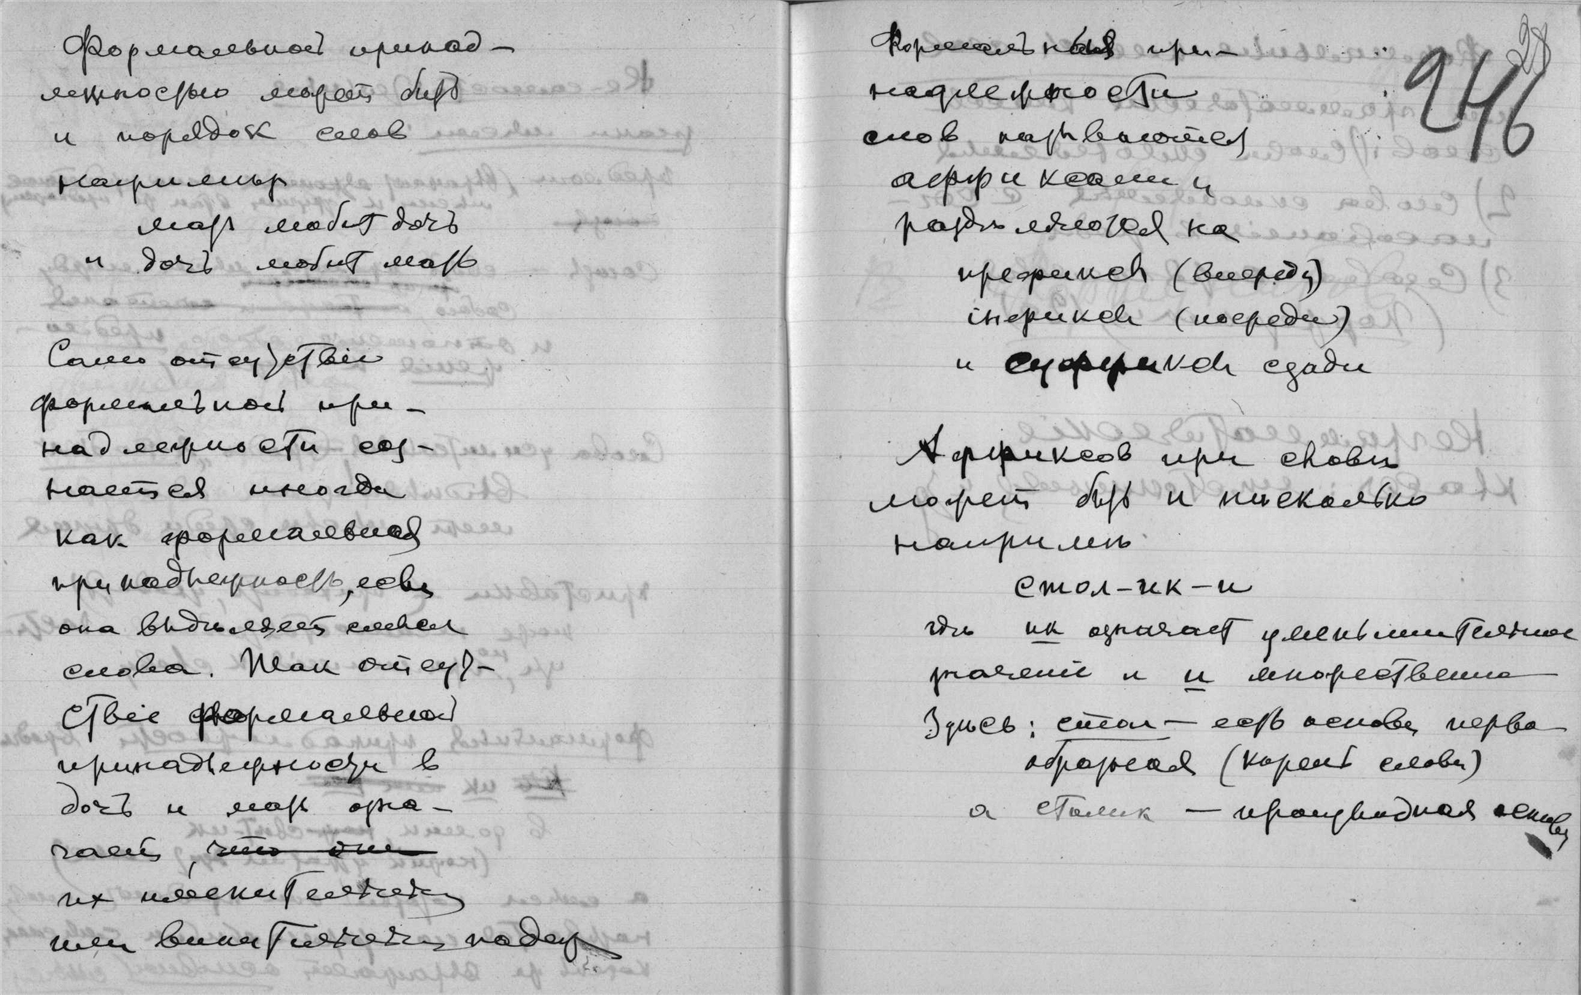 Формальной принад-
лежностью может быть
и порядок слов
например
мать любит дочь
и дочь любит мать
Само отсутствіе
формальной при-
надлежности соз-
нается иногда
как формальная
принадлежность, если
она выделяет смысл
слова. Так отсут-
ствіе формальной
принадлежности в
дочь и мать озна-
чает, что они
их именительный
или винительный падеж
28
246
Формальныя при-
надлежности
слов называются
аффиксами и
разделяются на
префиксы (впереди)
інфиксы (посреди)
и суффиксы сзади
Аффиксов при слове
может быть и несколько
например
стол-ик-и
где ик означает уменьшительное
значеніе и и множественно
Здесь: стол — есть основа перво
образная (корень слова)
а столик — производная основа